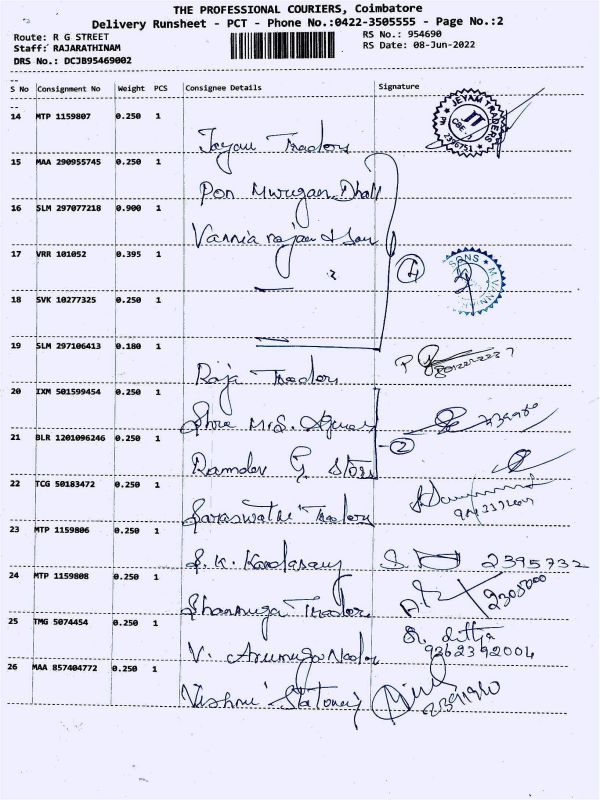 THE PROFESSIONAL COURIERS, Coimbatore
Delivery Runsheet - PCT - Phone No.:0422-3505555 - Page No.:2
Route: R G STREET
RS No.: 954690
Staff: RAJARATHINAM
RS Date: 08-Jun-2022
DRS No.: DCJB95469002
S No Consignment No Weight PCS Consignee Details Signature
14 MTP 1159807 0.250 1
Jeyam Traders
JEYAM TRADERS
CBE-
2396751
15 MAA 290955745 0.250 1
Pon Murugan Dhall
16 SLM 297077218 0.900 1
Vannia rajan & Son
17 VRR 101052 0.395 1
4
SONS
18 SVK 10277325 0.250 1
19 SLM 297106413 0.180 1
Raja Traders
20 IXM 501599454 0.250 1
Shree M.S. Agency
21 BLR 1201096246 0.250 1
2
Ramdev G. Stores
22 TCG 50183472 0.250 1
Saraswathi Traders
23 MTP 1159806 0.250 1
S. K. Kandasamy
2395732
24 MTP 1159808 0.250 1
Shanmuga Traders
25 TMG 5074454 0.250 1
V. Arumuga Nadar
9362392004
26 MAA 857404772 0.250 1
Vishnu Stationery